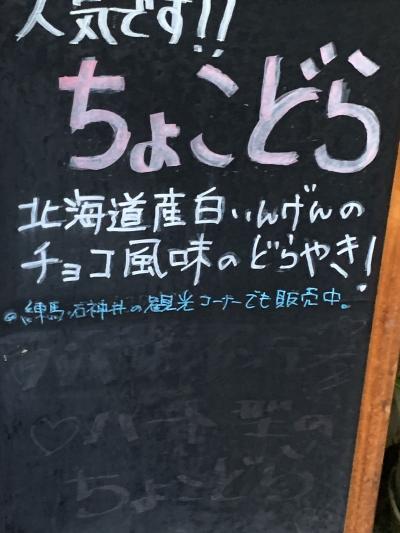 人気です!!
ちょこどら
北海道産白いんげんの
チョコ風味のどらやき!
練馬・石神井の観光コーナーでも販売中。
♡ハート型の
ちょこどら